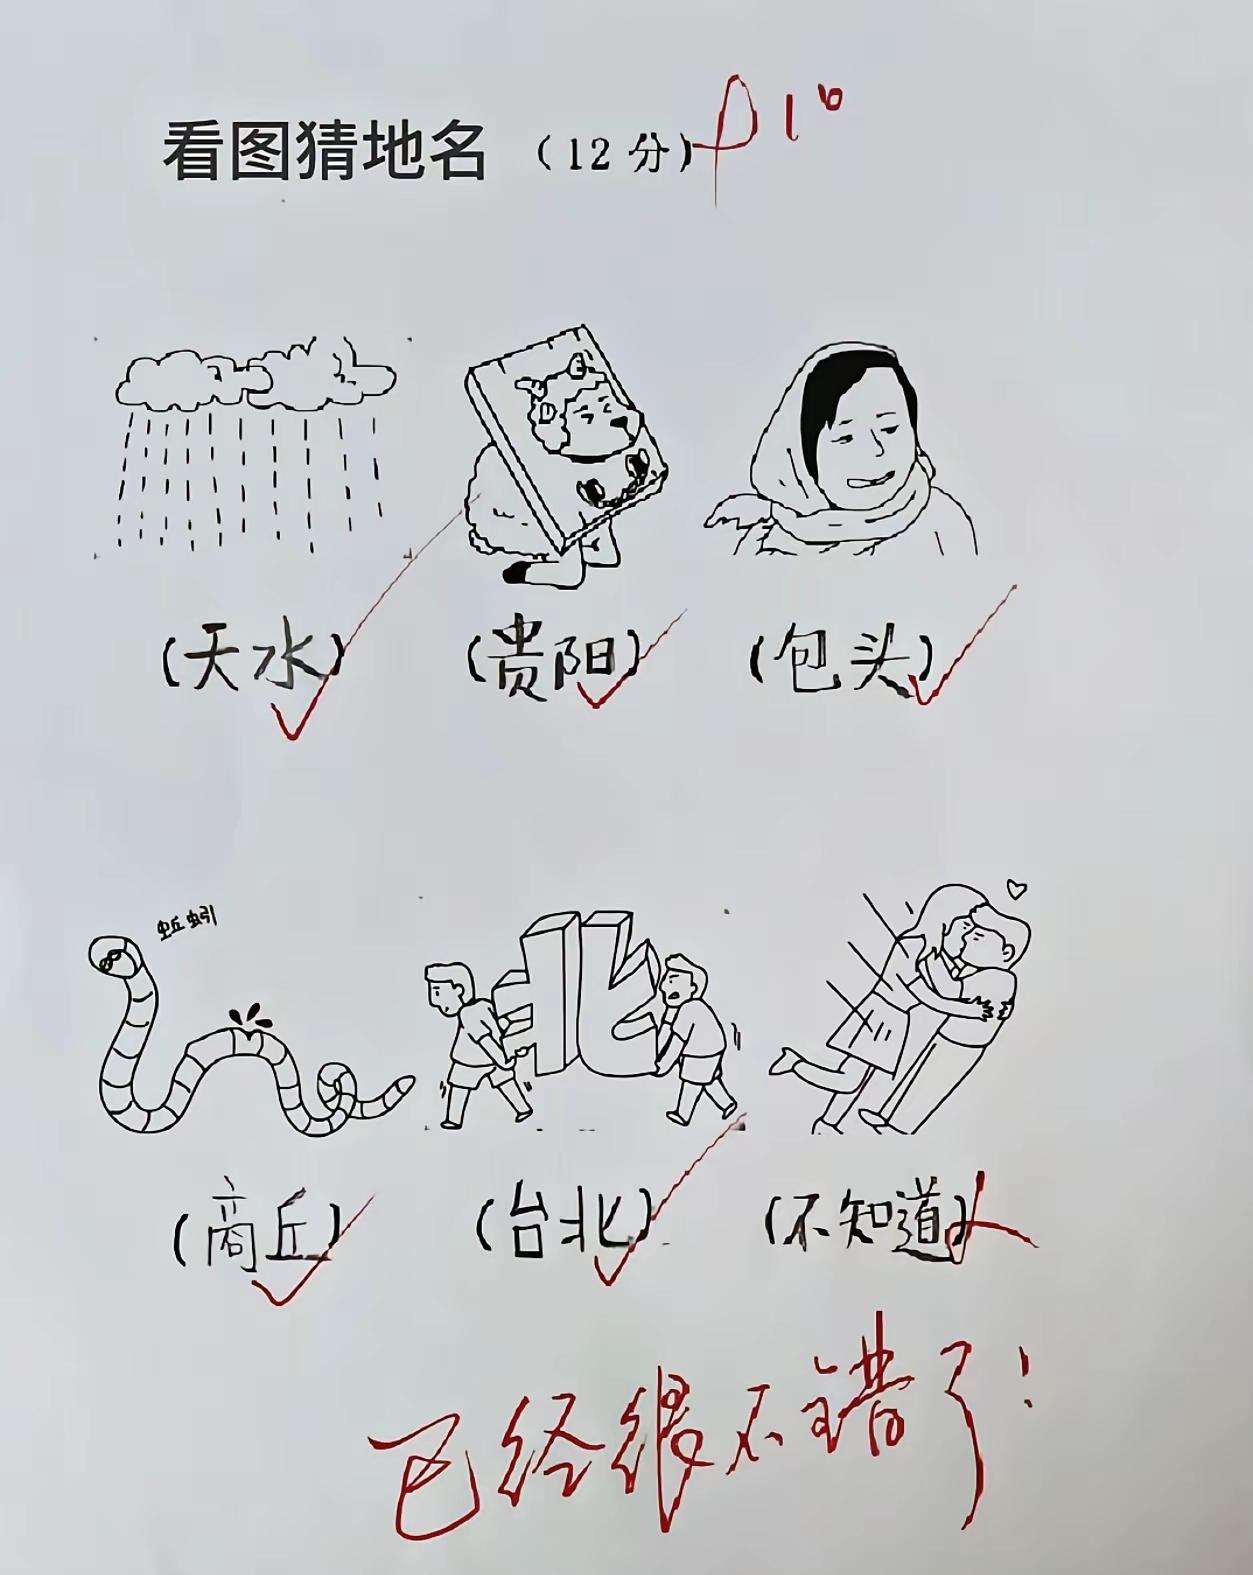 看图猜地名 (12分) 10
(天水) (贵阳) (包头)
蚯蚓
北
(商丘) (台北) (不知道)
已经很不错了!